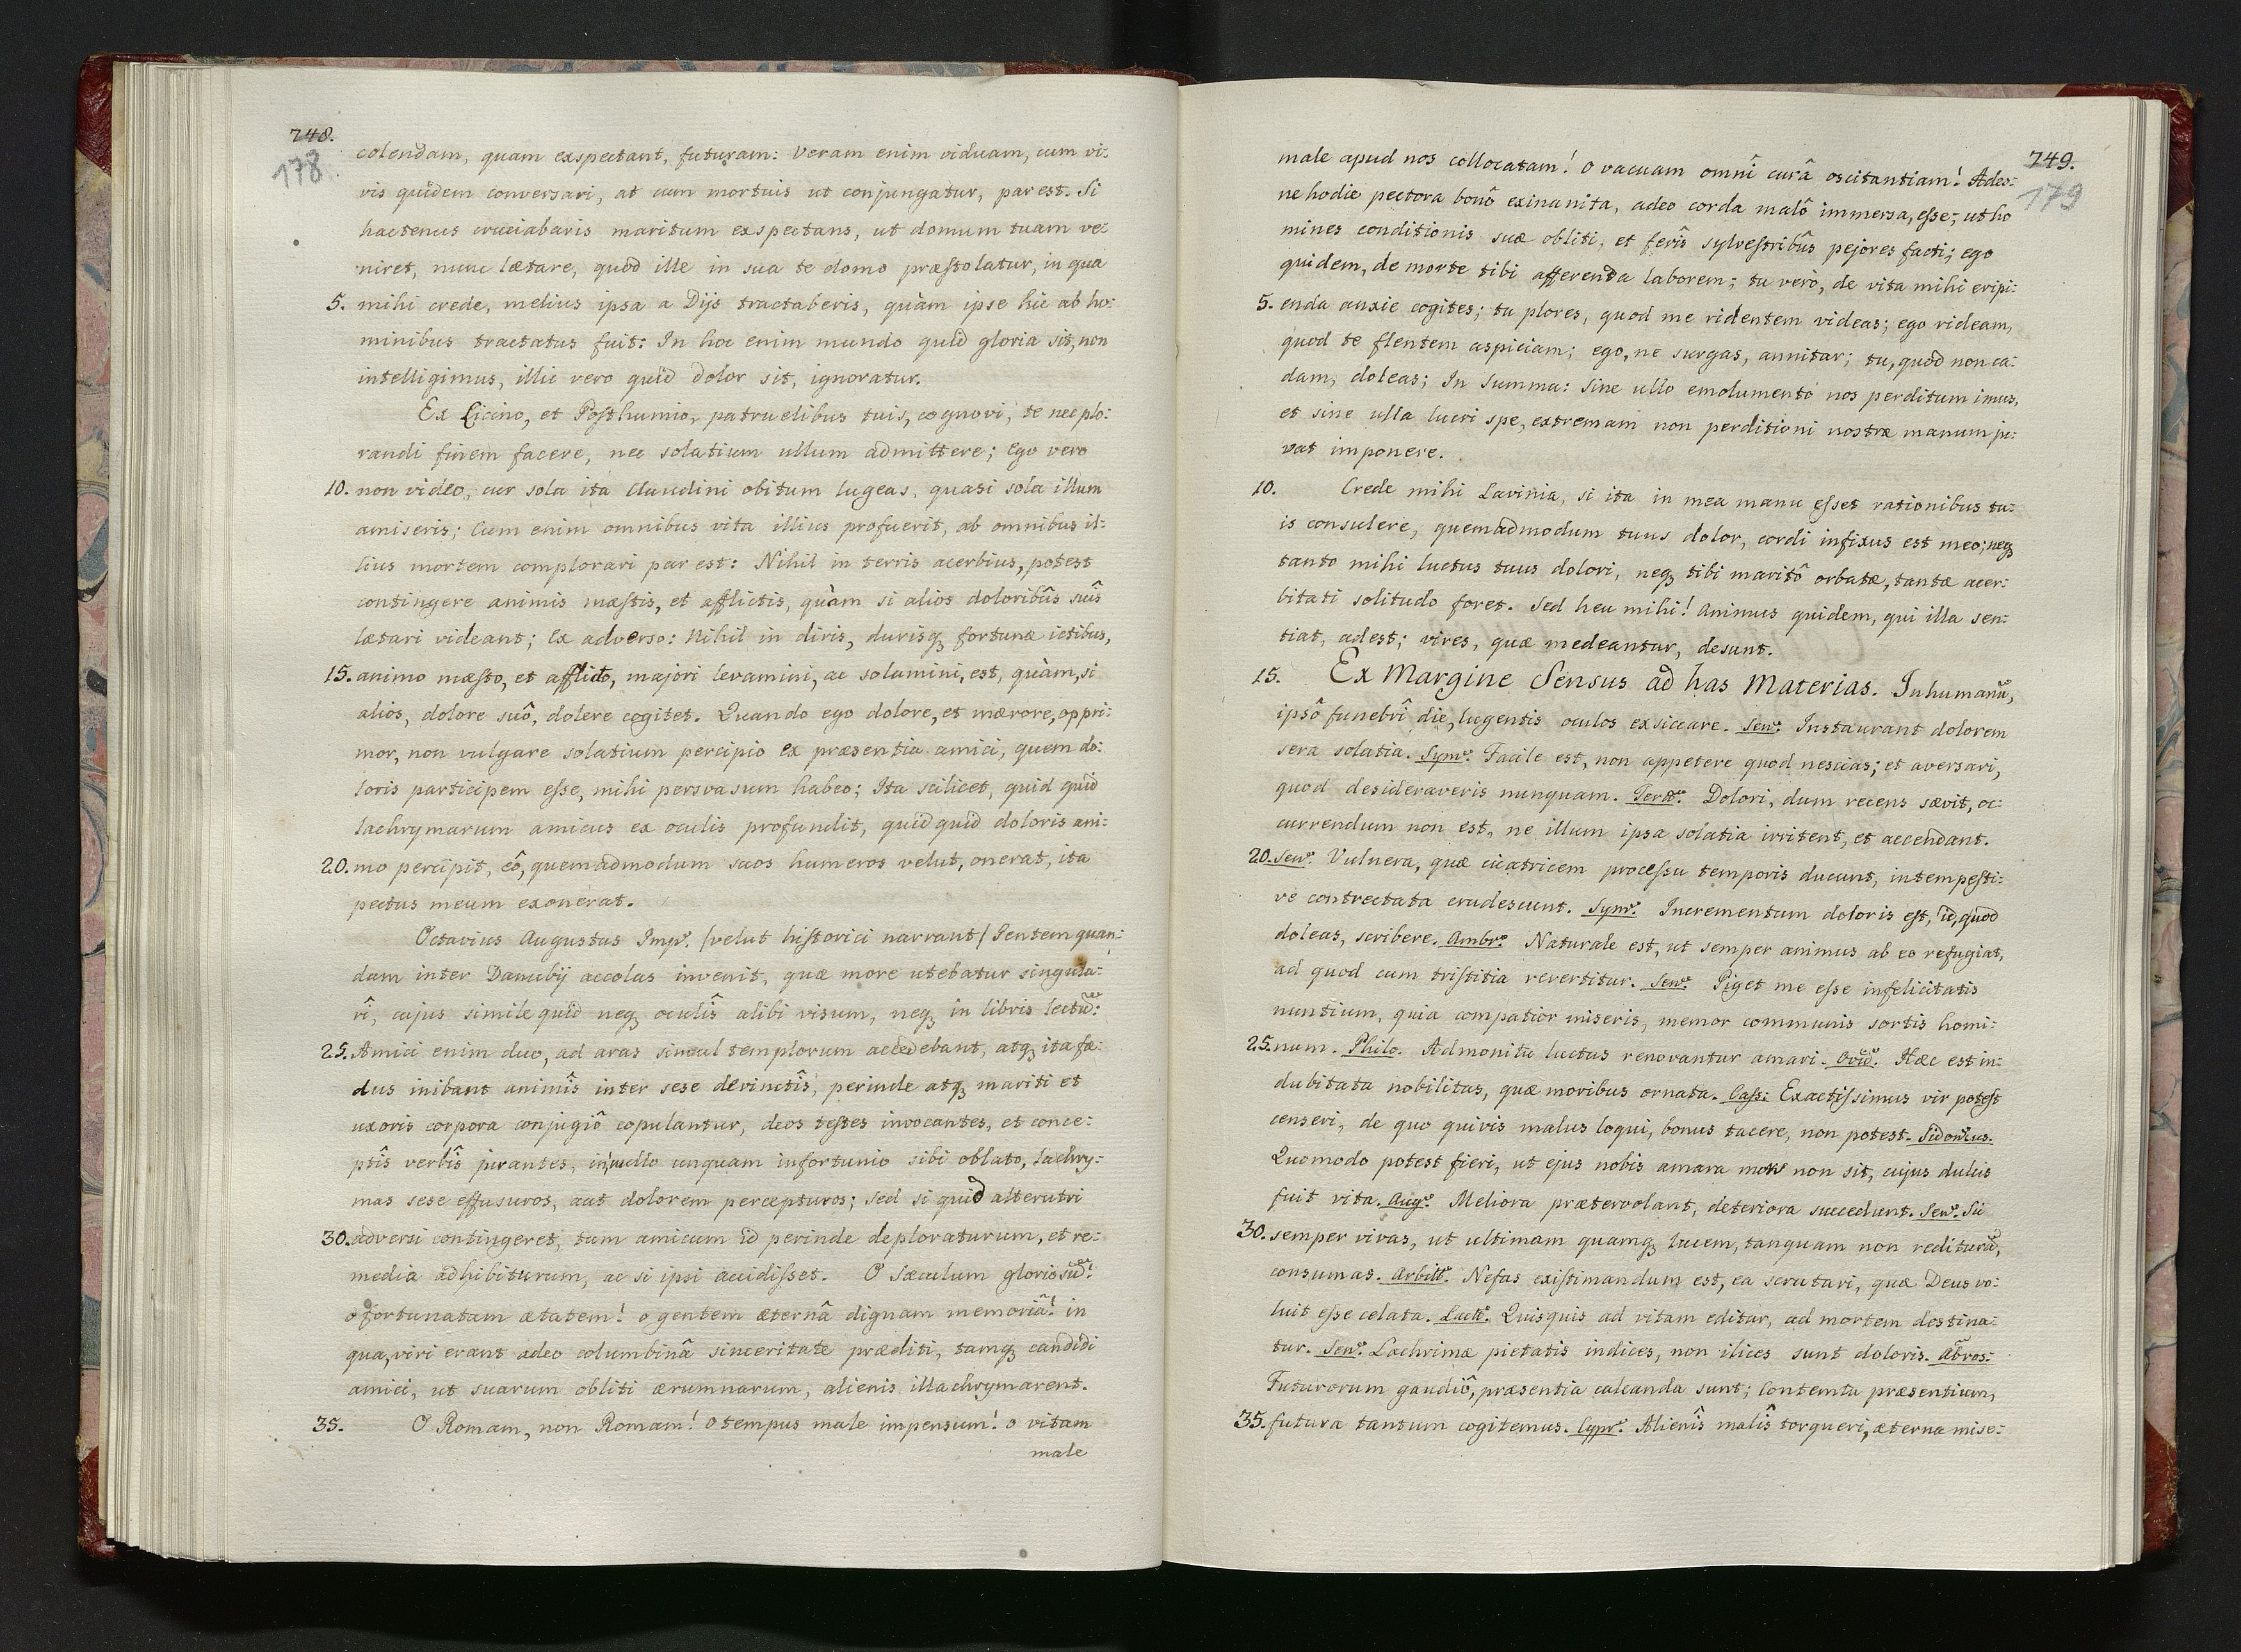 748.
178
colendam, quam exspectant, futuram: Veram enim viduam, cum vi:
vis quidem conversari, at cum mortuis ut conjungatur, par est. Si
hactenus cruciabaris maritum exspectans, ut domum tuam ve:
niret, nunc lætare, quòd ille in sua te domo præstolatur, in qua
5. mihi crede, melius ipsa a Dijs tractaberis, quàm ipse hic ab ho:
minibus tractatus fuit: In hoc enim mundo quid gloria sit, non
intelligimus, illic vero quid dolor sit, ignoratur.
Ex Licino, et Posthumio, patruelibus tuis, cognovi, te nec plo:
randi finem facere, nec solatium ullum admittere; Ego vero
10. non video, cur sola ita Claudini obitum lugeas, quasi sola illum
amiseris; Cum enim omnibus vita illius profuerit, ab omnibus il:
lius mortem complorari par est: Nihil in terris acerbius, potest
contingere animis mæstis, et afflictis, quàm si alios doloribûs suîs
lætari videant; Ex adverso: Nihil in diris, durisq, fortunæ ictibus,
15. animo mæsto, et afflicto, majori levamini, ac solamini, est, quàm, si
alios, dolore suô, dolere cogitet. Quando ego dolore, et mærore, oppri:
mor, non vulgare solatium percipio ex præsentia amici, quem do:
loris participem esse, mihi persvasum habeo; Ita scilicet, quid quid
lachrymarum amicus ex oculis profundit, quidquid doloris ani:
20. mo percipit, eô, quemadmodum suos humeros velut, onerat, ita
pectus meum exonerat.
Octavius Augustus Imp.r (velut historici narrant) Gentem quan:
dam inter Danubij accolas invenit, quæ more utebatur singula:
rî, cujus simile quid neq, oculîs alibi visum, neq, in libris lectũ:
25. Amici enim duo, ad aras simul templorum accedebant, atq, ita fæ:
dus inibant animîs inter sese devinctîs, perinde atq, mariti et
uxoris corpora conjugiô copulantur, deos testes invocantes, et conce:
ptîs verbîs jurantes, in nullo unquam infortunio sibi oblato, lachry:
mas sese effusuros, aut dolorem percepturos; Sed si quid alterutri
30. adversi contingeret, tum amicum id perinde deploraturum, et re:
media adhibiturum, ac si ipsi accidisset. O Sæculum gloriosũ!
o fortunatam ætatem! o gentem æternâ dignam memoriâ! in
qua, viri erant adeo columbinâ sinceritate præditi, tamq, candidi
amici, ut suarum obliti ærumnarum, alienis illachrymarent.
35. O Romam, non Romam! O tempus male impensum! o vitam
male
749.
179
male apud nos collocatam! O vacuam omnî curâ oscitantiam! Adeo:
ne hodie pectora bonô exinanita, adeo corda malô immersa, esse; ut ho
mines conditionis suæ obliti, et ferîs sylvestribûs pejores facti; ego
quidem, de morte tibi afferenda laborem; tu verò, de vita mihi eripi:
5. enda anxie cogites; tu plores, quod me ridentem videas; ego rideam,
quod te flentem aspiciam; ego, ne surgas, annitar; tu, quòd non ca:
dam, doleas; In summa: Sine ullo emolumento nos perditum imus,
et sine ulla lucri spe, extremam non perditioni nostræ manum ju:
vat imponere.
10. Crede mihi Lavinia, si ita in mea manu esset rationibus tu:
is consulere, quemadmodum tuus dolor, cordi infixus est meo; neq,
tanto mihi luctus tuus dolori, neq, tibi maritô orbatæ, tantæ acer:
bitati solitudo foret. Sed heu mihi! Animus quidem, qui illa sen:
tiat, adest; vires, quæ medeantur, desunt.
15. Ex Margine Sensus ad has Materias. Inhumanũ,
ipsô funebrî die, lugentis oculos exsiccare. Sen.ª Instaurant dolorem
sera solatia. Sym.s Facile est, non appetere quod nescias; et aversari,
quod desideraveris nunquam. Tert.s Dolori, dum recens sævit, oc:
currendum non est, ne illum ipsa solatia irritent, et accendant.
20. Sen.ª Vulnera, quæ cicatricem processu temporis ducunt, intempesti:
ve contrectata crudescunt. Sym.s Incrementum doloris est, id, quod
doleas, scribere. Ambr.s Naturale est, ut semper animus ab eo refugiat,
ad quod cum tristitia revertitur. Sen.ª Piget me esse infelicitatis
nuntium, quia compatior miseris, memor communis sortis homi:
25. num. Philo. Admonitu luctus renovantur amari. Ovid.s Hæc est in:
dubitata nobilitas, quæ moribus ornata. Cass: Exactissimus vir potest
censeri, de quo quivis malus loqui, bonus tacere, non potest. Sidonius.
Quomodo potest fieri, ut ejus nobis amara mors non sit, cujus dulcis
fuit vita. Aug.s Meliora prætervolant, deteriora succedunt. Sen.ª Sic
30. semper vivas, ut ultimam quamq, lucem, tanquam non rediturã,
consumas. Arbitt.r Nefas existimandum est, ea scrutari, quæ Deus vo:
luit esse celata. Lactt.s Quisquis ad vitam editur, ad mortem destina:
tur. Sen.ª Lachrimæ pietatis indices, non ilices sunt doloris. Abros:
Futurorum gaudiô, præsentia calcanda sunt; Contemtu præsentium,
35. futura tantum cogitemus. Cypr.s Alienîs malîs torqueri, æterna mise: